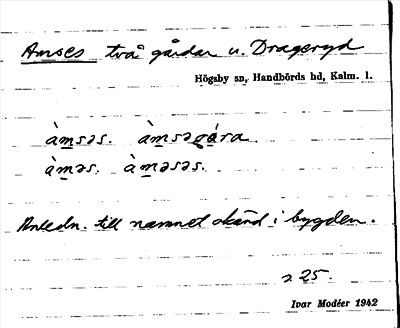 Amses två gårdar u. Drageryd
Högsby sn, Handbörds hd, Kalm. l.
àm̲sɘs. àm̲sɘgá̲ra
àm̲ɘs. àm̲ɘsɘs.
Anledn. till namnet okänd i bygden.
s. 25.
Ivar Modéer 1942